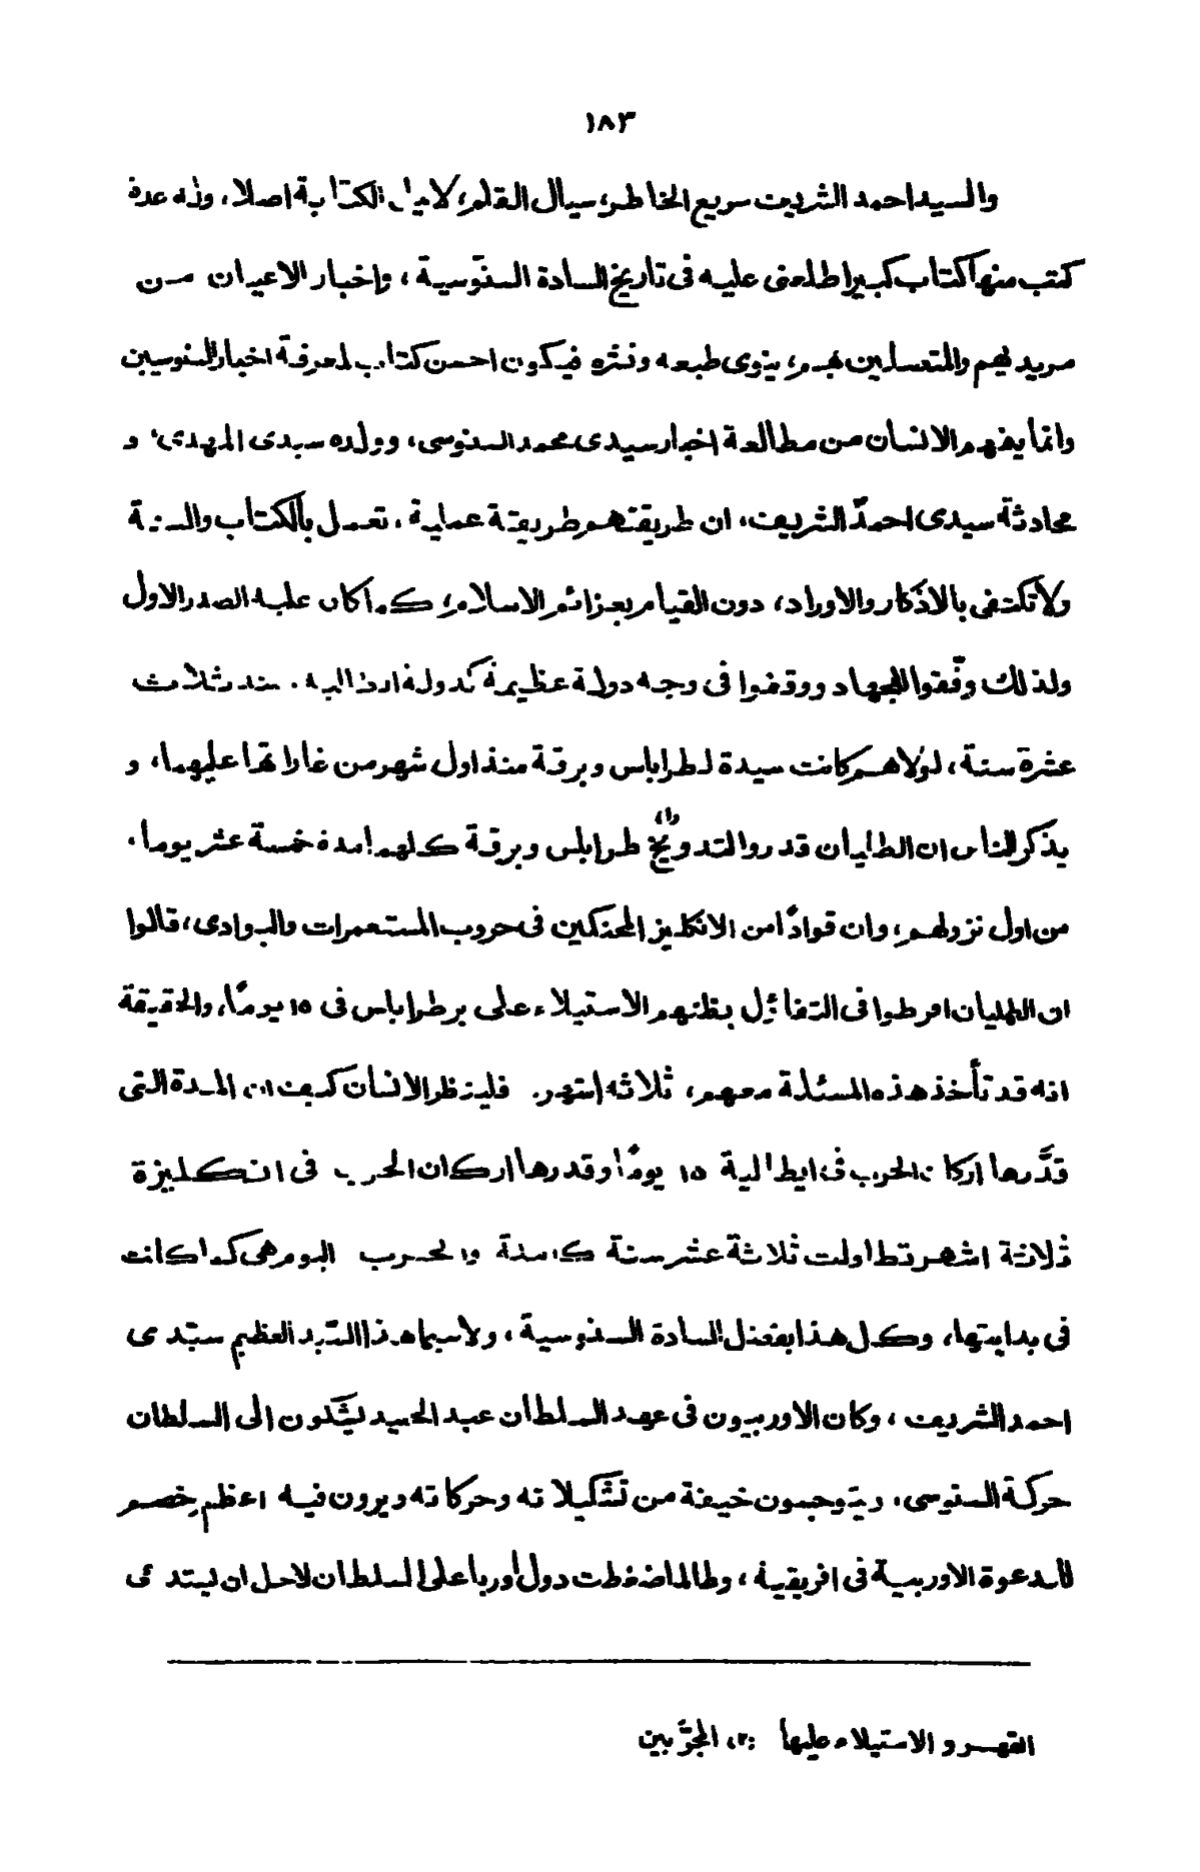 ١٨٣
والسيد احمد الشريف سريع الخاطر، سيال القلم، لا يمل الكتابة اصلا، وله عدة
كتب منها كتاب كبير اطلعنى عليه فى تاريخ السادة السنوسية، واخبار الاعيان من
مريديهم والمتصلين بهم، ينوى طبعه ونشره فيكون احسن كتاب لمعرفة اخبار السنوسيين
وانما يفهم الانسان من مطالعة اخبار سيدى محمد السنوسى، وولده سيدى المهدى، و
محادثة سيدى احمد الشريف، ان طريقتهم طريقة عملية، تعمل بالكتاب والسنة
ولا تكتفى بالاذكار والاوراد، دون القيام بعزائم الاسلام، كما كان عليه الصدر الاول
ولذلك وفّقوا للجهاد ووقفوا فى وجه دولة عظيمة كدولة ايطالية. منذ ثلاث
عشرة سنة، لولاهم كانت سيدة لطرابلس وبرقة منذ اول شهر من غاراتها عليهما، و
يذكر الناس ان الطليان قدروا لتدويخ (١) طرابلس وبرقة كلهما مدة خمسة عشر يوما،
من اول نزولهم، وان قوادًا من الانكليز المحنكين فى حروب المستعمرات والبوادى، قالوا
ان الطليان افرطوا فى التفائل بظنهم الاستيلاء على بر طرابلس فى ١٥ يومًا، والحقيقة
انه قد تأخذ هذه المسئلة معهم، ثلاثة اشهر. فلينظر الانسان كيف ان المدة التى
قدَّرها اركان الحرب فى ايطالية ١٥ يومًا وقدرها اركان الحرب فى انكليزة
ثلاثة اشهر تطاولت ثلاثة عشر سنة كاملة والحرب اليوم هى كما كانت
فى بدايتها، وكل هذا بفضل السادة السنوسية، ولا سيما هذا السيد العظيم سيّدى
احمد الشريف، وكان الاوربيون فى عهد السلطان عبد الحميد يشكون الى السلطان
حركة السنوسى، ويتوجسون خيفة من تشكيلاته وحركاته ويرون فيه اعظم خصم
للدعوة الاوربية فى افريقية، وطالما ضغطت دول اوربا على السلطان لاجل ان يستدعى
القهر والاستيلاء عليها (٢) المجرّبين